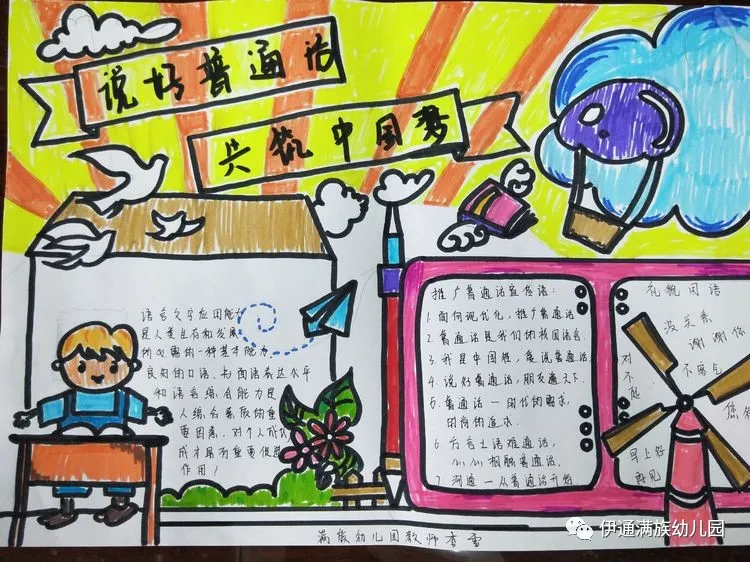 说好普通话
共筑中国梦
语言文字应用能力
是人类生存和发展
所必需的一种基本能力
良好的口语、书面语表达水平
和语言综合能力是
人综合素质的重
要因素，对个人成长
成才具有重要促进
作用！
推广普通话宣传语：
1.面向现代化，推广普通话
2.普通话是我们的校园语言
3.我是中国娃，爱说普通话
4.说好普通话，朋友遍天下.
5.普通话一时代的要求，
时尚的追求.
6.方言土语难通话，
心心相融普通话.
7.沟通一从普通话开始
礼貌用语
没关系
谢谢你
对不起
不客气
您
早上好
再见
满族幼儿园教师李雪
伊通满族幼儿园